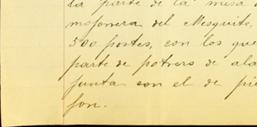 la parte de la mesa d
mojonera del Mesquite,
500 postes, con los que
parte de potrero de ala
junta con el de pie
son.